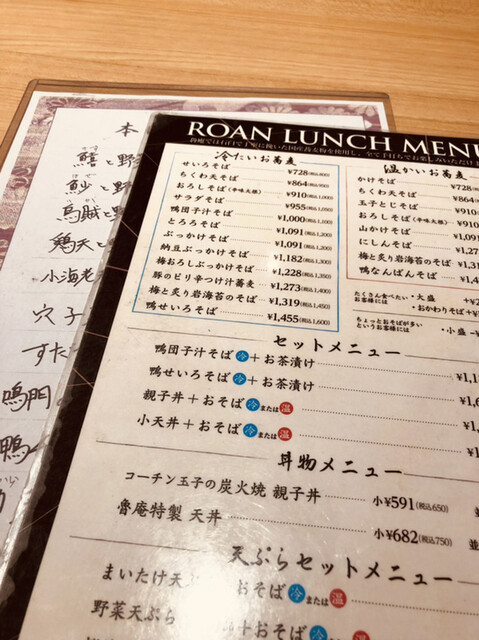 ROAN LUNCH MENU
冷たいお蕎麦
せいろそば ¥728(税込800)
ちくわ天そば ¥864(税込950)
おろしそば(辛味大根) ¥910(税込1,000)
サラダそば ¥955(税込1,050)
鴨団子汁そば ¥1,000(税込1,100)
とろろそば ¥1,091(税込1,200)
ぶっかけそば ¥1,091(税込1,200)
納豆ぶっかけそば ¥1,182(税込1,300)
梅おろしぶっかけそば ¥1,228(税込1,350)
豚のピリ辛つけ汁蕎麦 ¥1,273(税込1,400)
梅と炙り岩海苔のそば ¥1,319(税込1,450)
鴨せいろそば ¥1,455(税込1,600)
温かいお蕎麦
かけそば ¥728
ちくわ天そば ¥864
玉子とじそば ¥910
おろしそば(辛味大根) ¥910
山かけそば
にしんそば
梅と炙り岩海苔のそば
鴨なんばんそば
たくさん食べたい・大盛
お客様には ・おかわりそば
ちょっとおそばが多い
というお客様には ・小盛
セットメニュー
鴨団子汁そば 冷 + お茶漬け
鴨せいろそば 冷 + お茶漬け
親子丼 + おそば 冷 または 温
小天丼 + おそば 冷 または 温
丼物メニュー
コーチン玉子の炭火焼 親子丼 小¥591(税込650) 並
魯庵特製 天丼 小¥682(税込750) 並
天ぷらセットメニュー
まいたけ天ぷ おそば 冷 または 温
野菜天ぷら +おそば 冷 または 温
本
鱚と野
鯊と野
烏賊と
鶏天と
小海老
穴子
すだ
鳴門
鴨